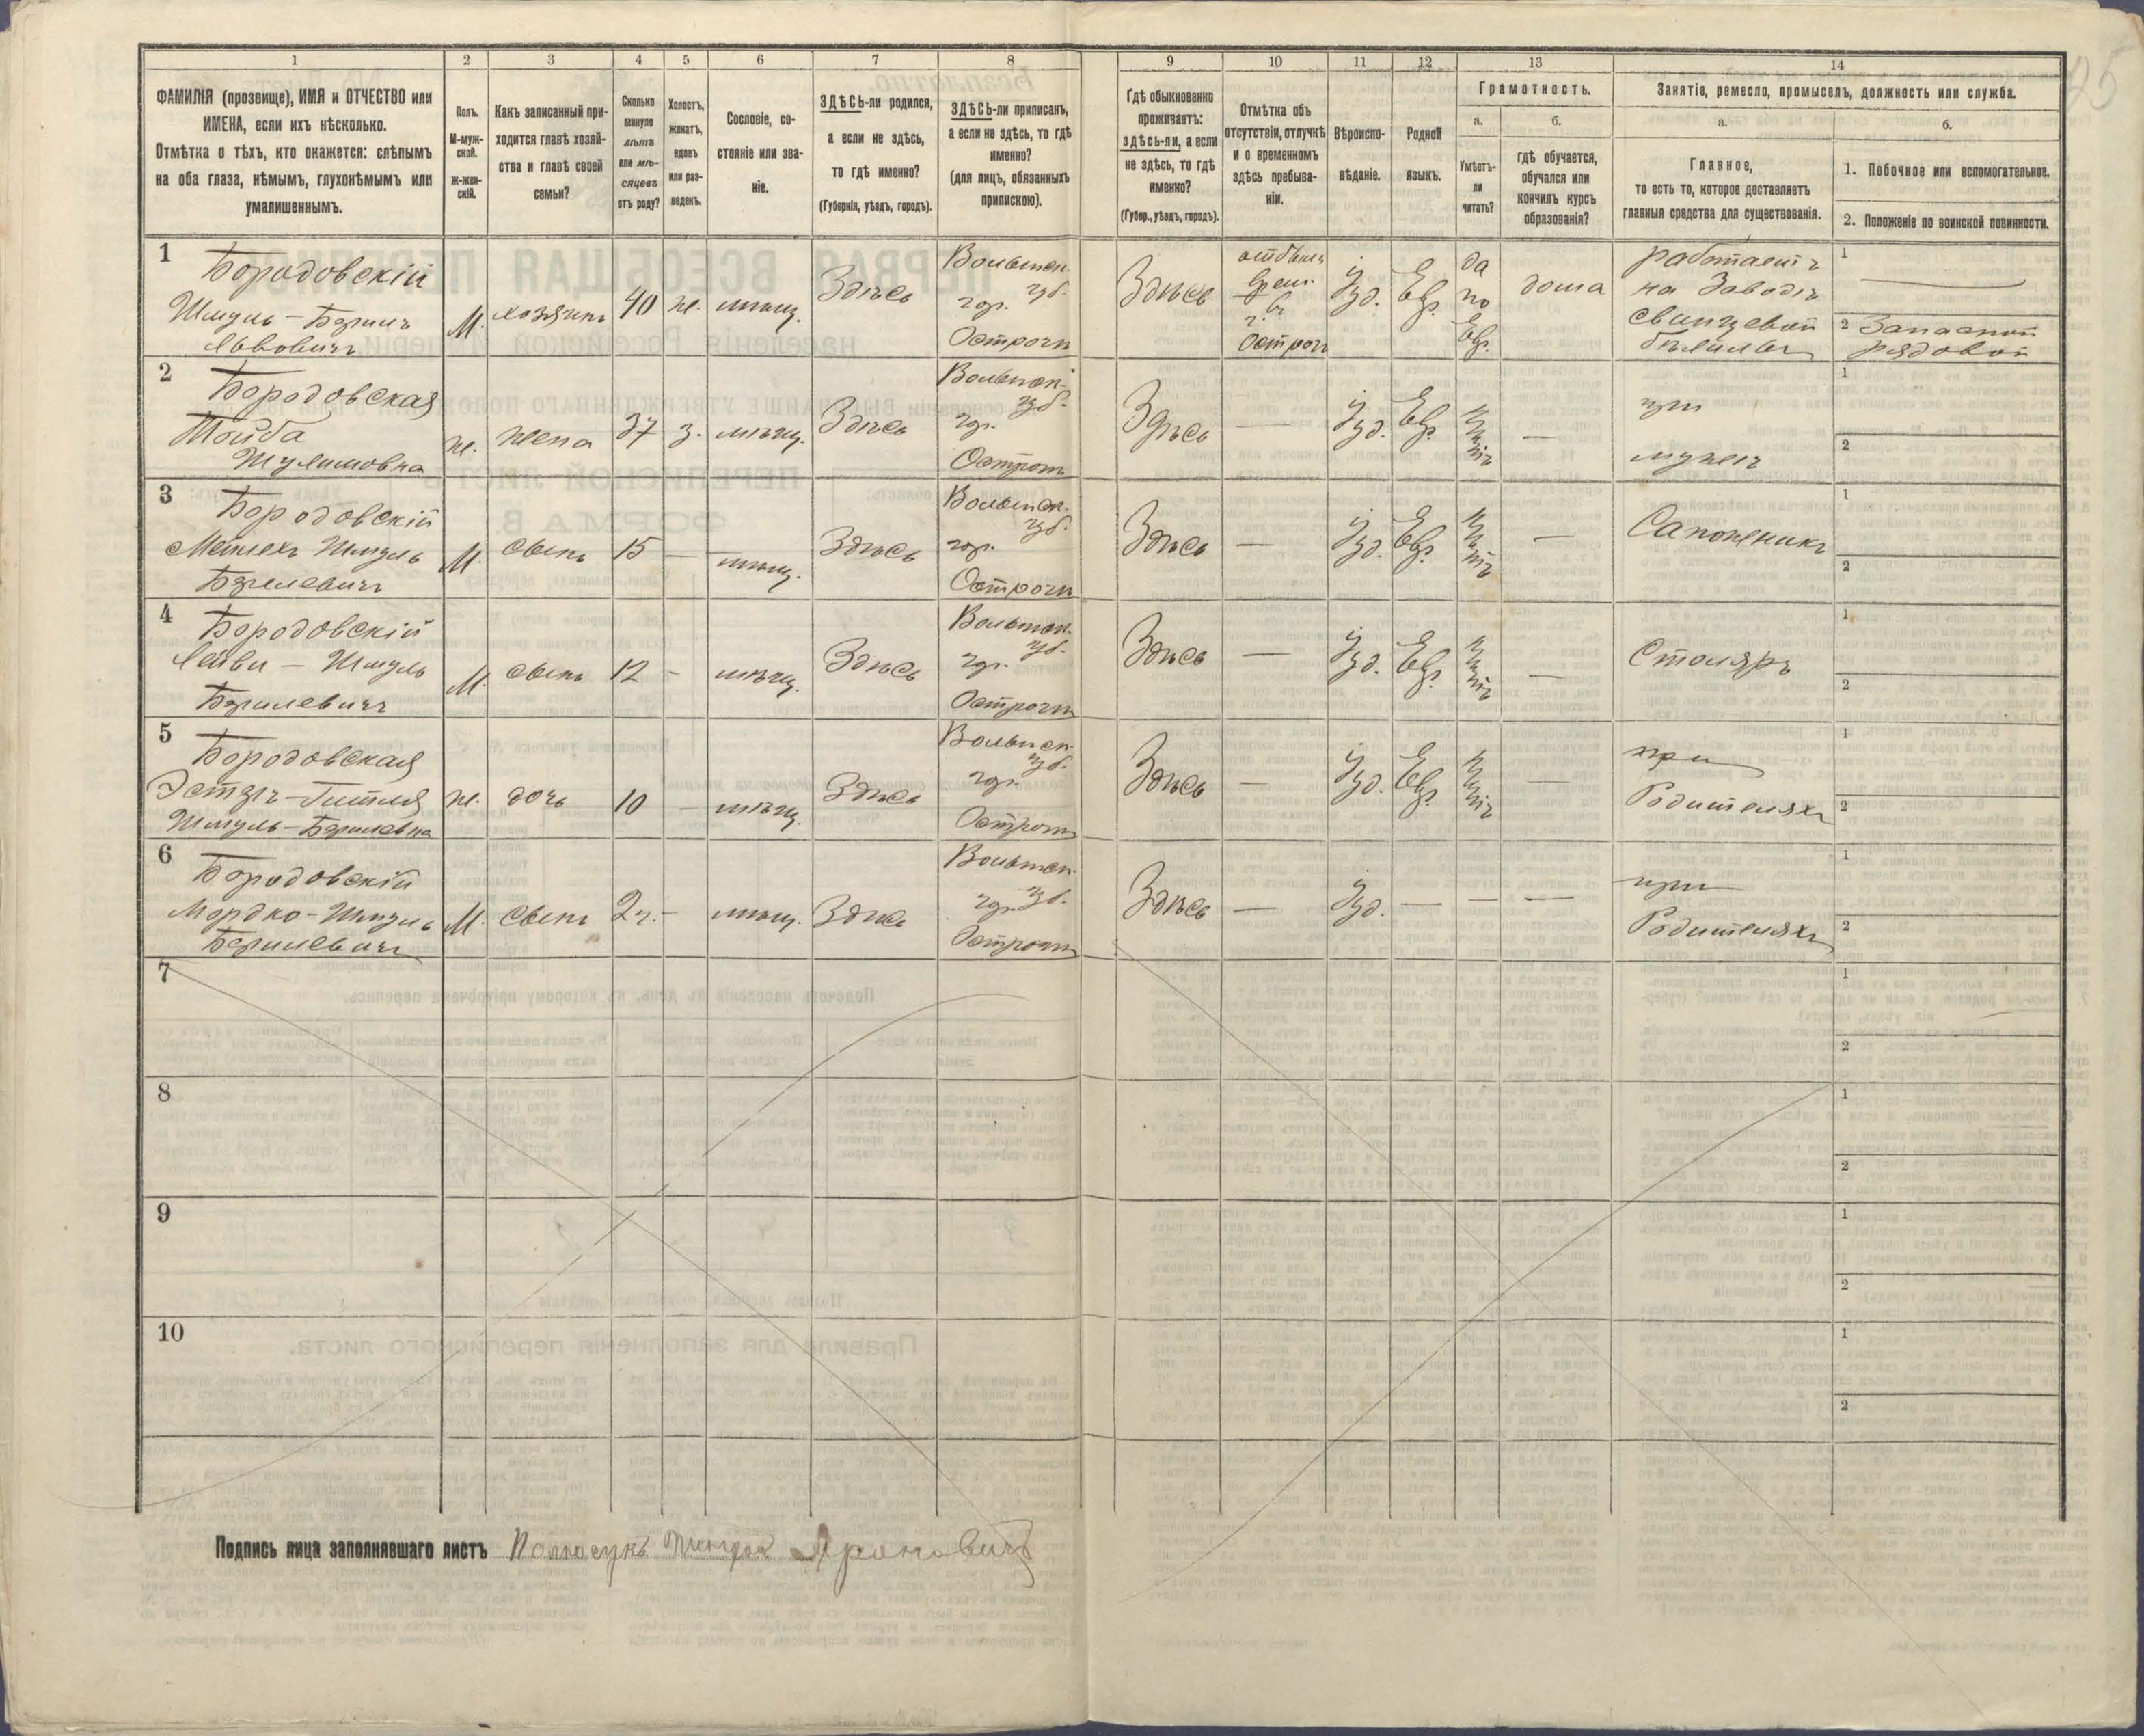 1 2 3 4 5 6 7 8 9 10 11 12 13 14
ФАМИЛІЯ (прозвище), ИМЯ и ОТЧЕСТВО или
ИМЕНА, если ихъ нѣсколько.
Отмѣтка о тѣхъ, кто окажется: слѣпымъ
на оба глаза, нѣмымъ, глухонѣмымъ или
умалишеннымъ.
Полъ.
М-муж-
ской.
Ж-жен-
скій.
Какъ записанный при-
ходится главѣ хозяй-
ства и главѣ своей
семьи?
Сколько
минуло
лѣтъ
или мѣ-
сяцевъ
отъ роду?
Холостъ,
женатъ,
вдовъ
или раз-
веденъ.
Сословіе, со-
стояніе или зва-
ніе.
ЗДѢСЬ-ли родился,
а если не здѣсь,
то гдѣ именно?
(Губернія, уѣздъ, городъ).
ЗДѢСЬ-ли приписанъ,
а если не здѣсь, то гдѣ
именно?
(для лицъ, обязанныхъ
припискою).
Гдѣ обыкновенно
проживаетъ:
здѣсь-ли, а если
не здѣсь, то гдѣ
именно?
(Губер., уѣздъ, городъ).
Отмѣтка объ
отсутствіи, отлучкѣ
и о временномъ
здѣсь пребыва-
ніи.
Вѣроиспо-
вѣданіе.
Родной
языкъ.
Грамотность.
а.
Умѣетъ-
ли
читать?
б.
гдѣ обучается,
обучался или
кончилъ курсъ
образованія?
Занятіе, ремесло, промыселъ, должность или служба.
а.
Главное,
то есть то, которое доставляетъ
главныя средства для существованія.
б.
1. Побочное или вспомогательное.
2. Положеніе по воинской повинности.
1
Бородовскій
Шмуль-Берко
Львовичъ
М. хозяинъ 40 ж. мѣщ. Здѣсь
гор.
Острогъ
Здѣсь
въ
Острогѣ
Іуд. Евр.
да
по
Евр.
дома
работаетъ
на Заводѣ
свинцевой
бѣлилы
1
2 Запасной
рядовой
2
Бородовская
Тойба
Шулимовна
ж. жена 37 з. мѣщ. Здѣсь
гор.
Острогъ
Здѣсь — Іуд. Евр. —
при
мужѣ
1
2
3
Бородовскій
Мейлехъ Шмуль
М. сынъ 15 — мѣщ. Здѣсь
гор.
Острогъ
Здѣсь — Іуд. Евр. —
Сапожникъ
1
2
4
Бородовскій
Лейви — Шмуль
М. сынъ 12 — мѣщ. Здѣсь
гор.
Острогъ
Здѣсь — Іуд. Евр. —
Столяръ
1
2
5
Бородовская
Эстеръ-Гитля
ж. дочь 10 — мѣщ. Здѣсь
гор.
Острогъ
Здѣсь — Іуд. Евр. —
при
Родителяхъ
1
2
6
Бородовскій
Мордко-Шмуль
М. сынъ — мѣщ. Здѣсь
гор.
Острогъ
Здѣсь — Іуд. — — —
при
Родителяхъ
1
2
7
1
2
8
1
2
9
1
2
10
1
2
Подпись лица заполнявшаго листъ Ароновичъ